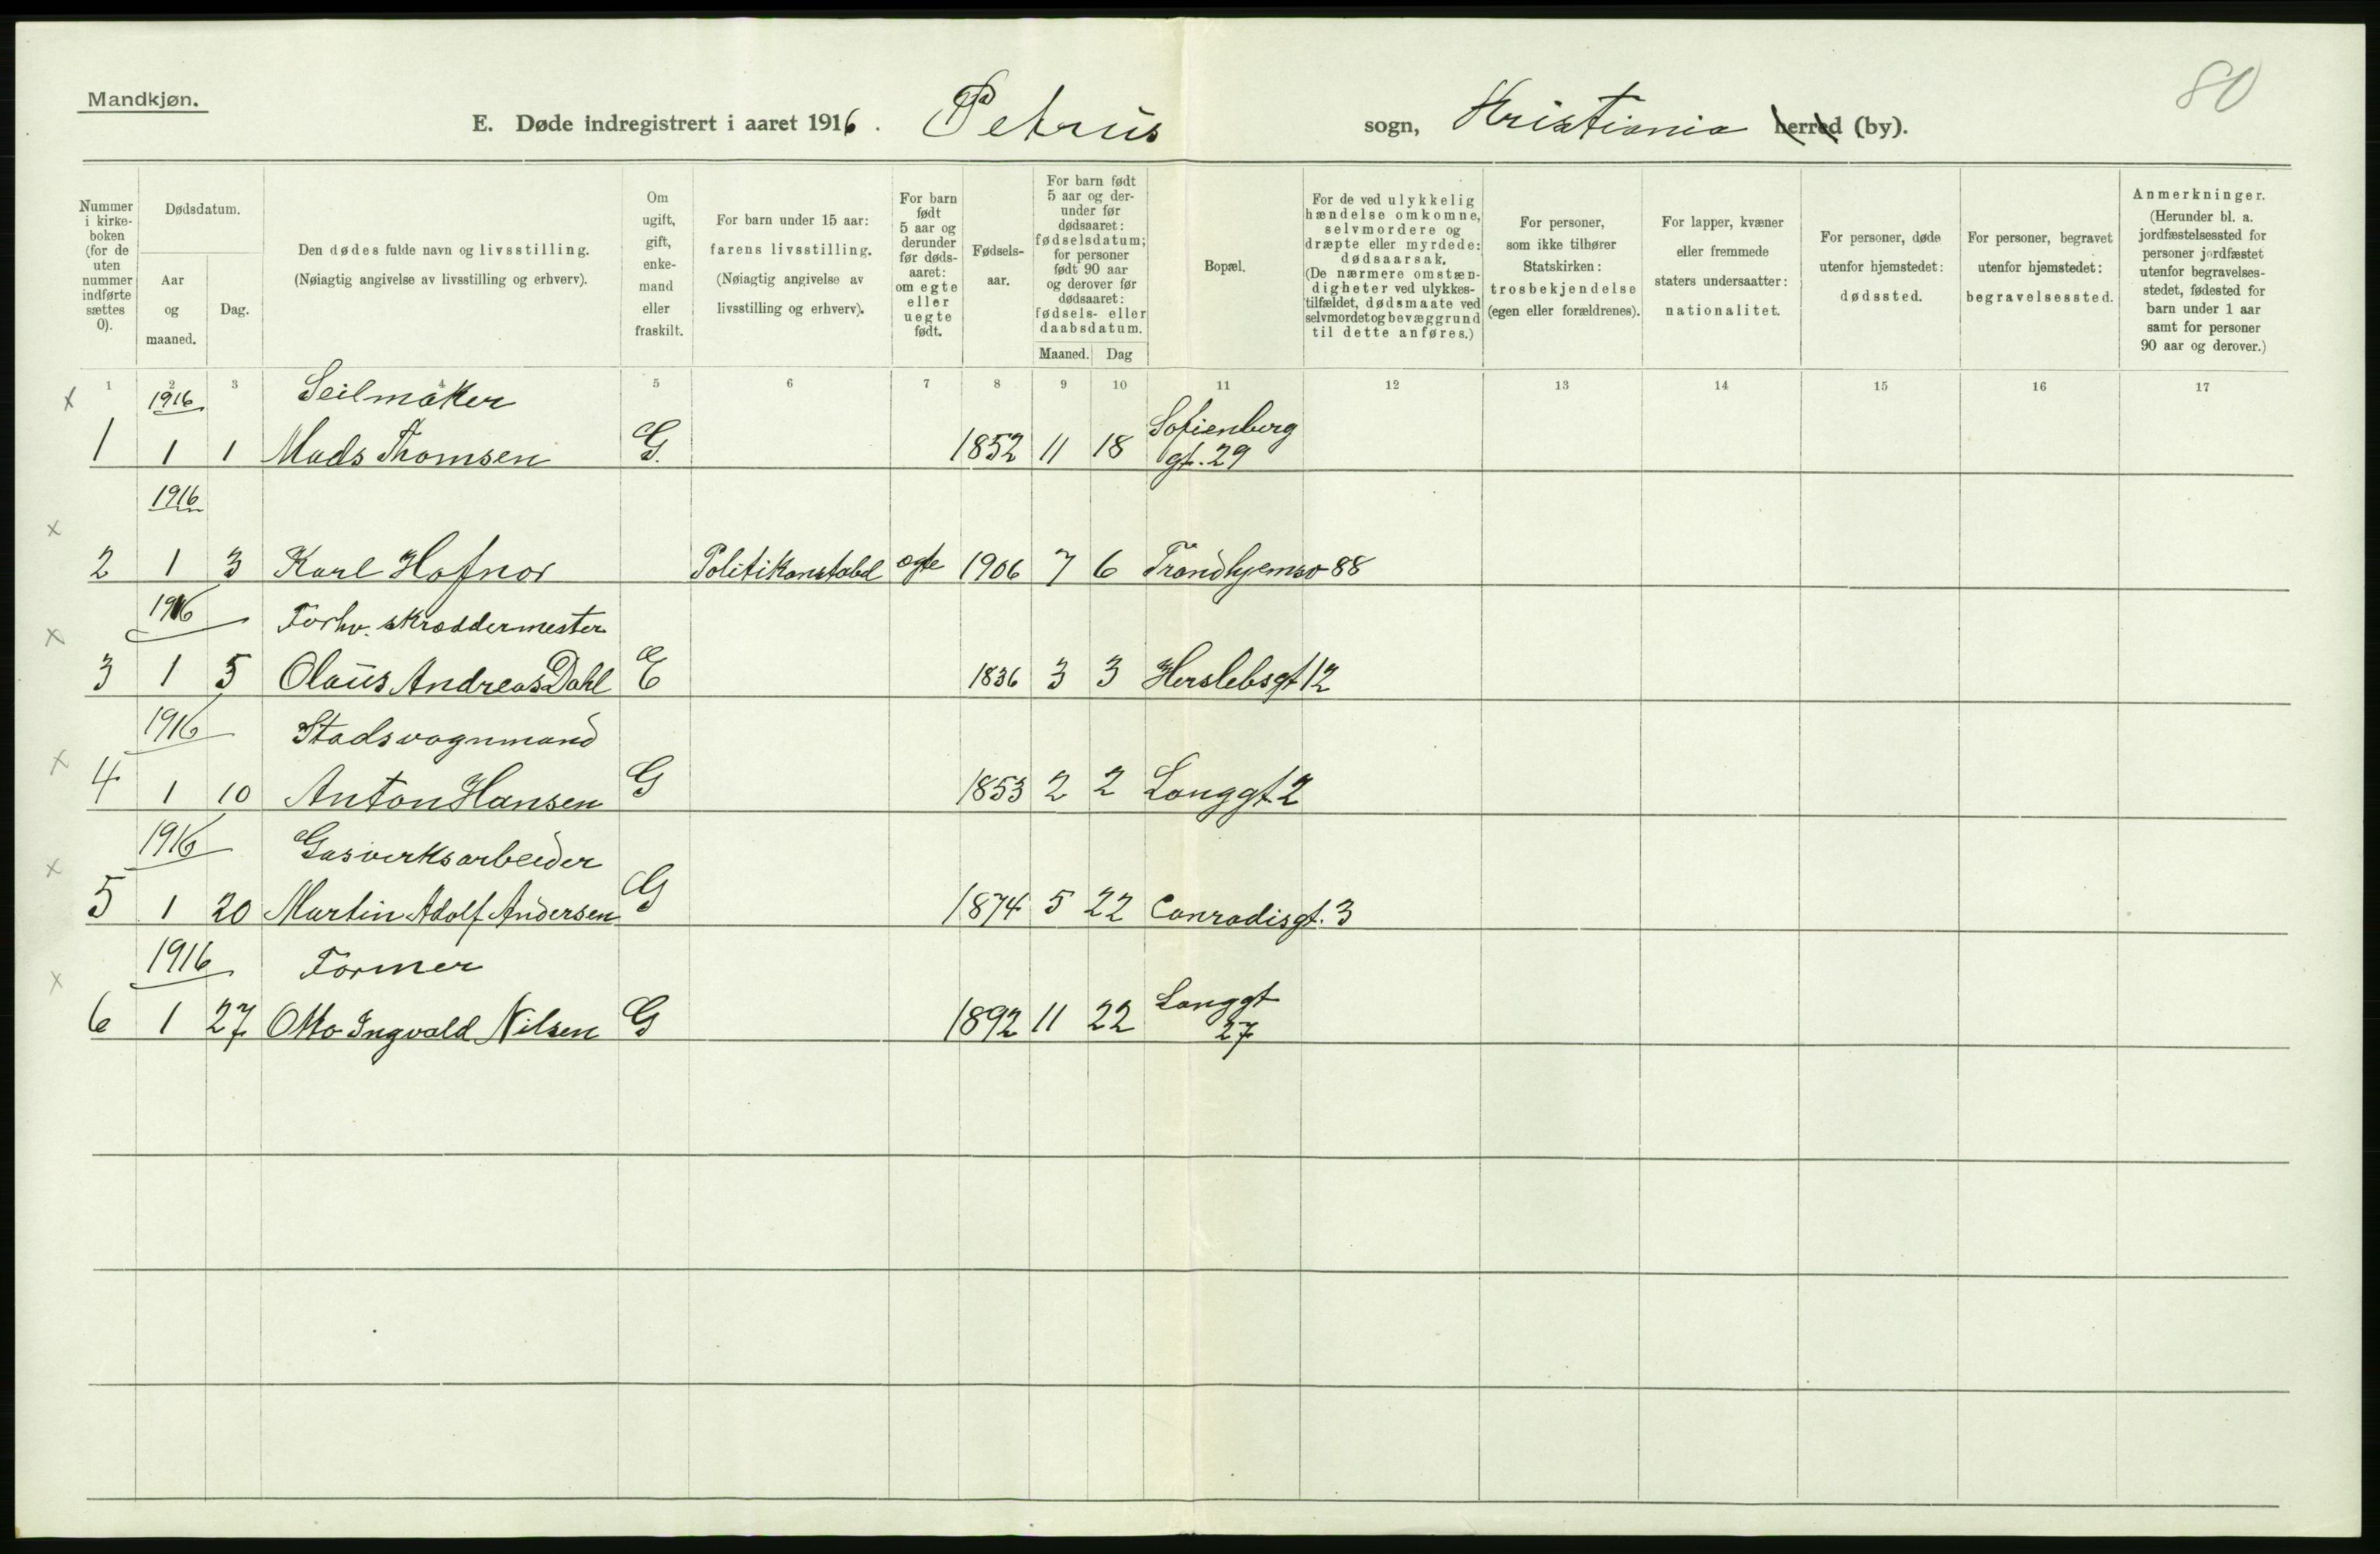 Mandkjøn.
80
E. Døde indregistrert i aaret 1916. Petrus sogn, Kristiania herred (by).
Nummer i kirke-boken (for de uten nummer indførte sættes 0).
Dødsdatum.
Aar og maaned.
Dag.
Den dødes fulde navn og livsstilling.
(Nøiagtig angivelse av livsstilling og erhverv).
Om ugift, gift, enke-mand eller fraskilt.
For barn under 15 aar: farens livsstilling. (Nøiagtig angivelse av livsstilling og erhverv).
For barn født 5 aar og derunder før døds-aaret: om egte eller uegte født.
Fødsels-aar.
For barn født 5 aar og der-under før dødsaaret: fødselsdatum; for personer født 90 aar og derover før dødsaaret: fødsels- eller daabsdatum.
Maaned. Dag
Bopæl.
For de ved ulykkelig hændelse omkomne, selvmordere og dræpte eller myrdede: dødsaarsak. (De nærmere omstæn-digheter ved ulykkes-tilfældet, dødsmaate ved selvmordet og bevæggrund til dette anføres.)
For personer, som ikke tilhører Statskirken: trosbekjendelse (egen eller forældrenes).
For lapper, kvæner eller fremmede staters undersaatter: nationalitet.
For personer, døde utenfor hjemstedet: dødssted.
For personer, begravet utenfor hjemstedet: begravelsessted.
Anmerkninger. (Herunder bl. a. jordfæstelsessted for personer jordfæstet utenfor begravelses-stedet, fødested for barn under 1 aar samt for personer 90 aar og derover.)
1 2 3 4 5 6 7 8 9 10 11 12 13 14 15 16 17
x 1916 Seilmaker
1 1 1 Mads Thomsen G. 1852 11 18 Sofienberg gt. 29
1916
x
2 1 3 Karl Hafnor Politikonstabel egte 1906 7 6 Trondhjemsv 88
1916 Forhv. skræddermester
x
3 1 5 Olaüs Andreas Dahl E 1836 3 3 Herslebsgt 12
1916 Stadsvognmand
x
4 1 10 Anton Hansen G 1853 2 2 Langgt. 2
1916 Gasverksarbeider
x
5 1 20 Martin Adolf Andersen G 1874 5 22 Conradisgt. 3
1916 Former
x
6 1 27 Otto Ingvald Nilsen G 1892 11 22 Langgt 27